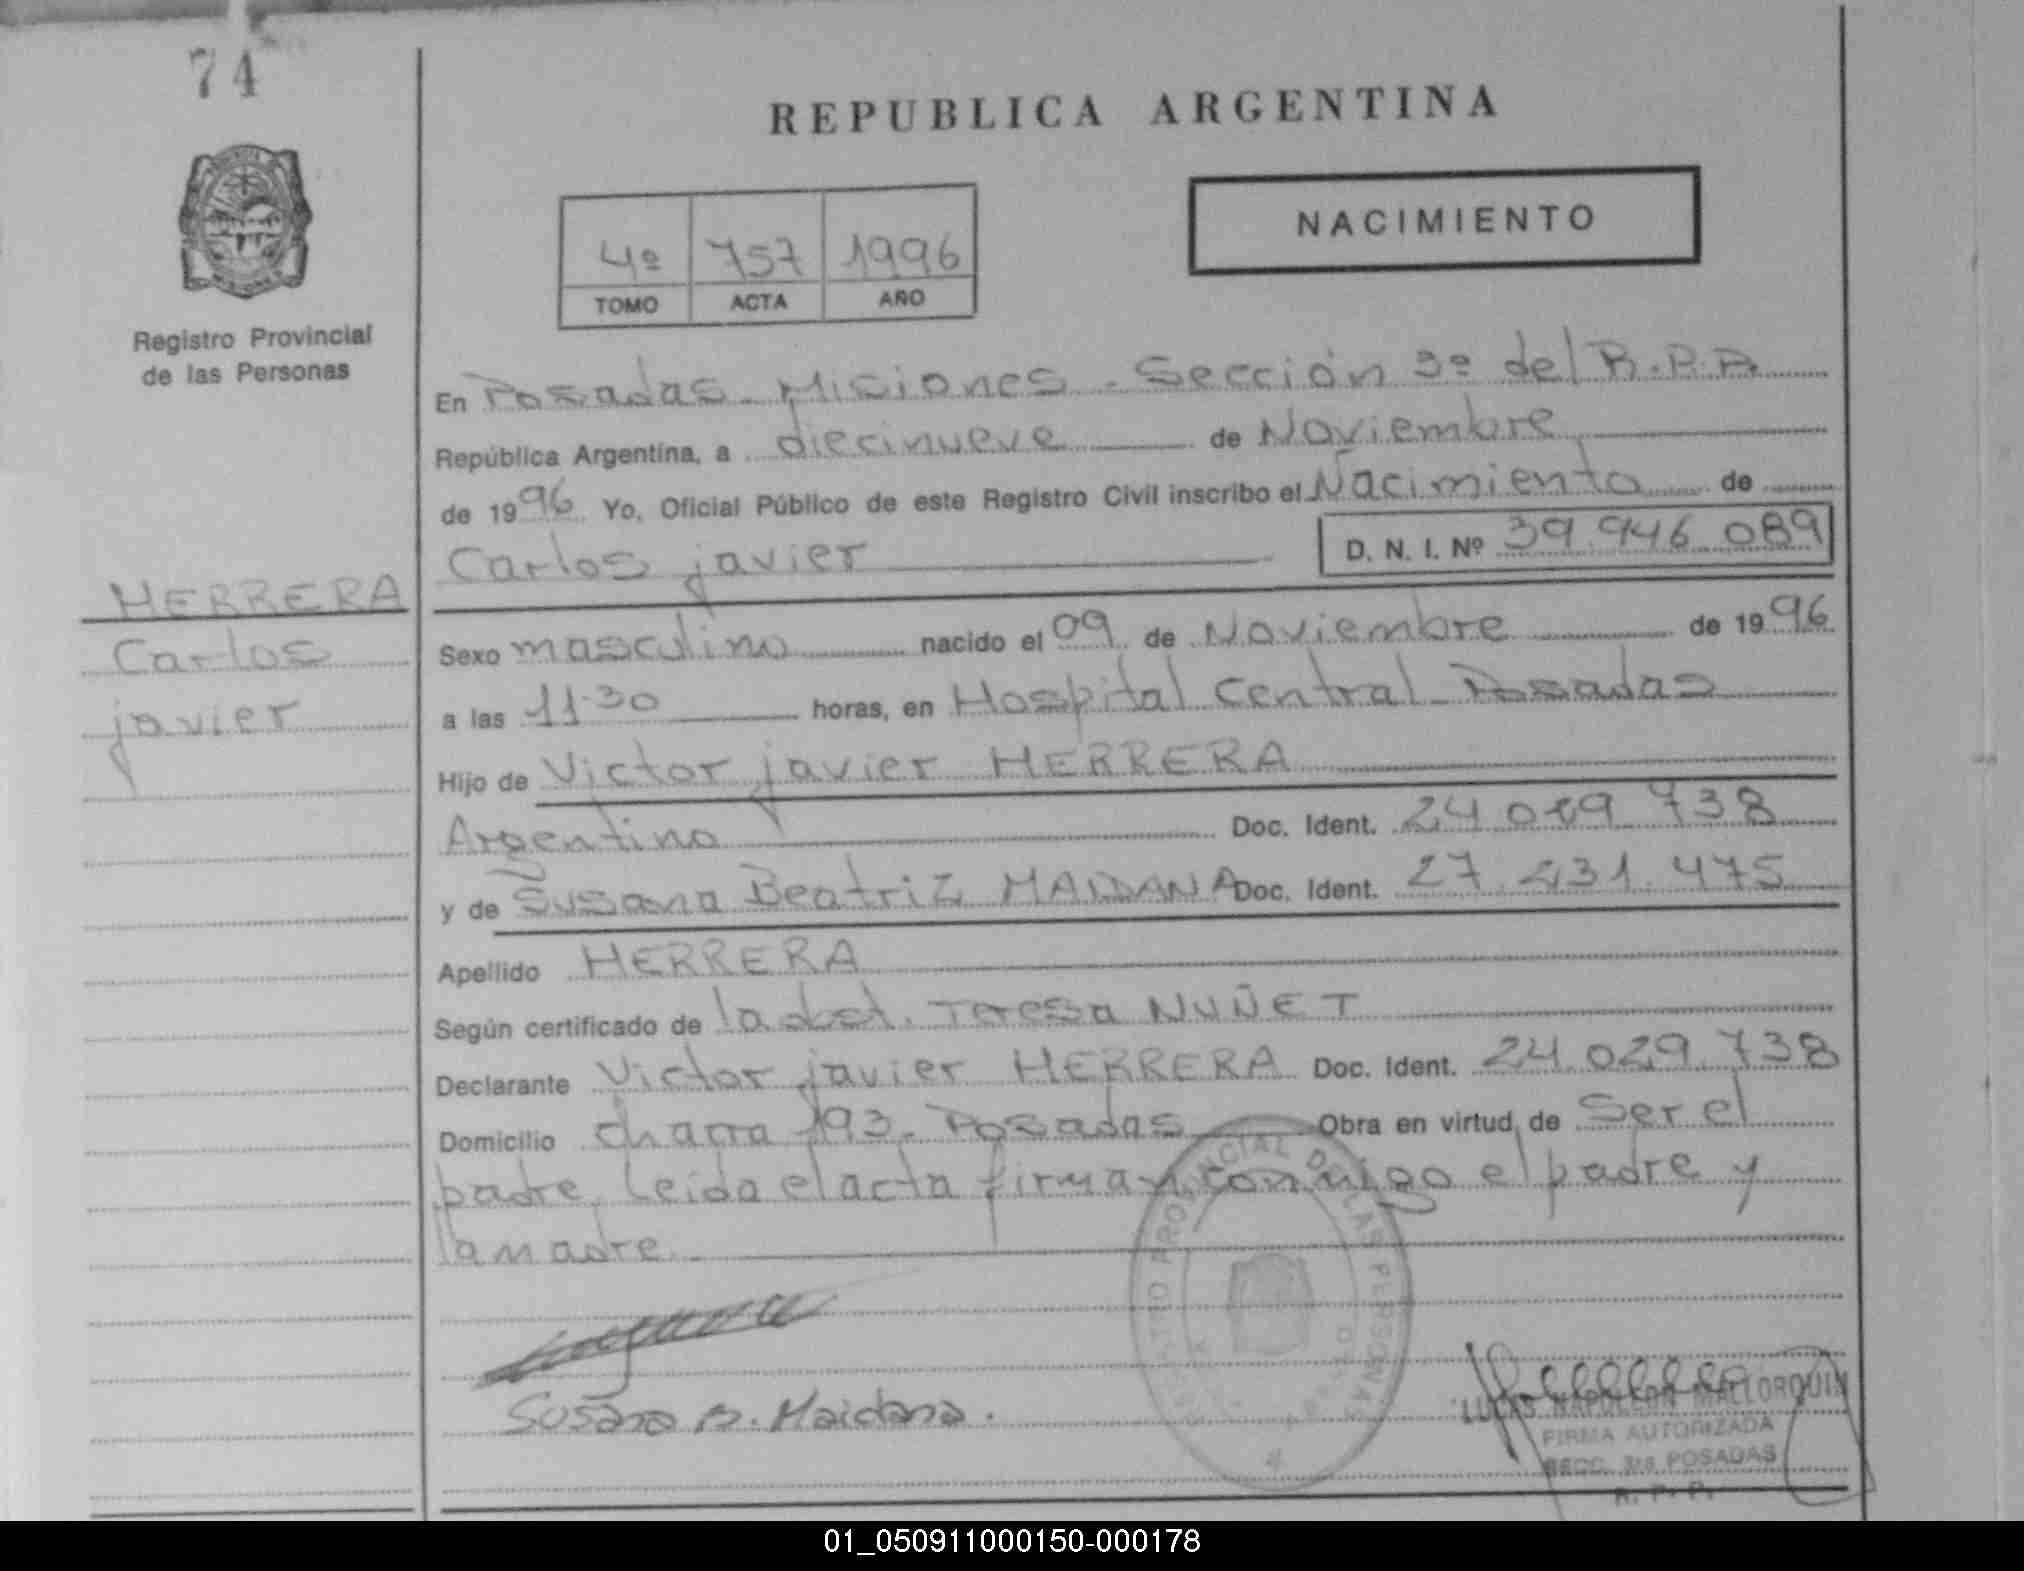 74
REPUBLICA ARGENTINA
NACIMIENTO
4º 757 1996
TOMO ACTA AÑO
Registro Provincial
de las Personas
HERRERA
Carlos
javier
En Posadas - Misiones - Sección 3º del R.P.P.
República Argentina, a diecinueve de Noviembre
de 1996 Yo, Oficial Público de este Registro Civil inscribo el Nacimiento de
Carlos javier D. N. I. Nº 39.946.089
Sexo masculino nacido el 09 de Noviembre de 1996
a las 11.30 horas, en Hospital Central Posadas
Hijo de Victor javier HERRERA
Argentino Doc. Ident. 24.029.738
y de Susana Beatriz MAIDANA Doc. Ident. 27.231.475
Apellido HERRERA
Según certificado de la obst. Teresa NUÑET
Declarante Victor javier HERRERA Doc. Ident. 24.029.738
Domicilio chacra 193 - Posadas Obra en virtud de ser el
padre. Leída el acta firman conmigo el padre y
la madre.
REGISTRO PROVINCIAL DE LAS PERSONAS
Susana B. Maidana.
LUCAS NAPOLEON MALLORQUIN
FIRMA AUTORIZADA
SECC. 3ra POSADAS
R. P. P.
01_050911000150-000178